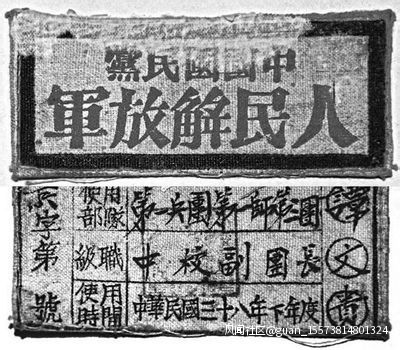 中國國民黨
人民解放軍
譚文
使用部隊 第一兵團第一師第二團
級職 中校副團長
使用時間 中華民國三十八年下年度
字第 號
风闻社区@guan_15573814801324